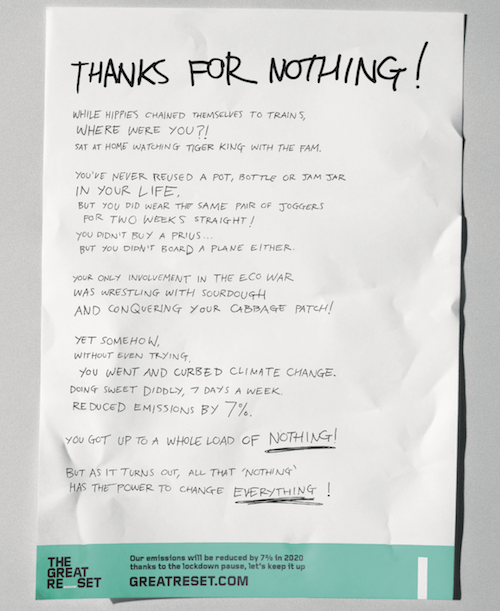 THANKS FOR NOTHING!
WHILE HIPPIES CHAINED THEMSELVES TO TRAINS,
WHERE WERE YOU?!
SAT AT HOME WATCHING TIGER KING WITH THE FAM.
YOU'VE NEVER REUSED A POT, BOTTLE OR JAM JAR
IN YOUR LIFE,
BUT YOU DID WEAR THE SAME PAIR OF JOGGERS
FOR TWO WEEKS STRAIGHT!
YOU DIDN'T BUY A PRIUS...
BUT YOU DIDN'T BOARD A PLANE EITHER.
YOUR ONLY INVOLVEMENT IN THE ECO WAR
WAS WRESTLING WITH SOURDOUGH
AND CONQUERING YOUR CABBAGE PATCH!
YET SOMEHOW,
WITHOUT EVEN TRYING,
YOU WENT AND CURBED CLIMATE CHANGE.
DOING SWEET DIDDLY, 7 DAYS A WEEK.
REDUCED EMISSIONS BY 7%.
YOU GOT UP TO A WHOLE LOAD OF NOTHING!
BUT AS IT TURNS OUT, ALL THAT 'NOTHING'
HAS THE POWER TO CHANGE EVERYTHING!
THE
GREAT
RE_SET
Our emissions will be reduced by 7% in 2020
thanks to the lockdown pause, let's keep it up
GREATRESET.COM